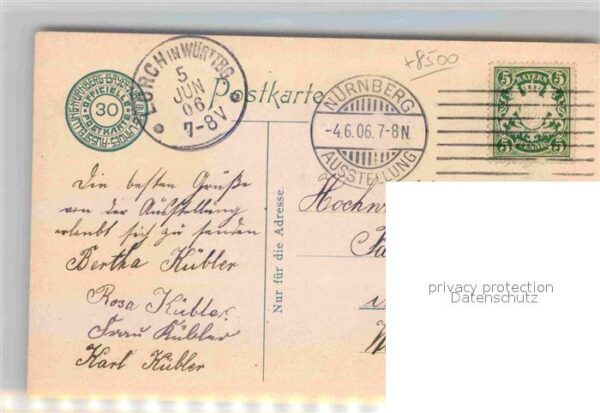 +8500
BAYER. LANDES-AUSSTELLUNG NÜRNBERG
OFFICIELLE POSTKARTE
30
LORCH IN WÜRTTBG
5
JUN
06
7-8V
Postkarte
NÜRNBERG
-4.6.06.7-8N.
AUSSTELLUNG
5 BAYERN 5
5 PFENNIG 5
Die besten Grüße
von der Ausstellung
erlaubt sich zu senden
Bertha Kübler
Rosa Kübler
Frau Kübler
Karl Kübler
Nur für die Adresse.
privacy protection
Datenschutz